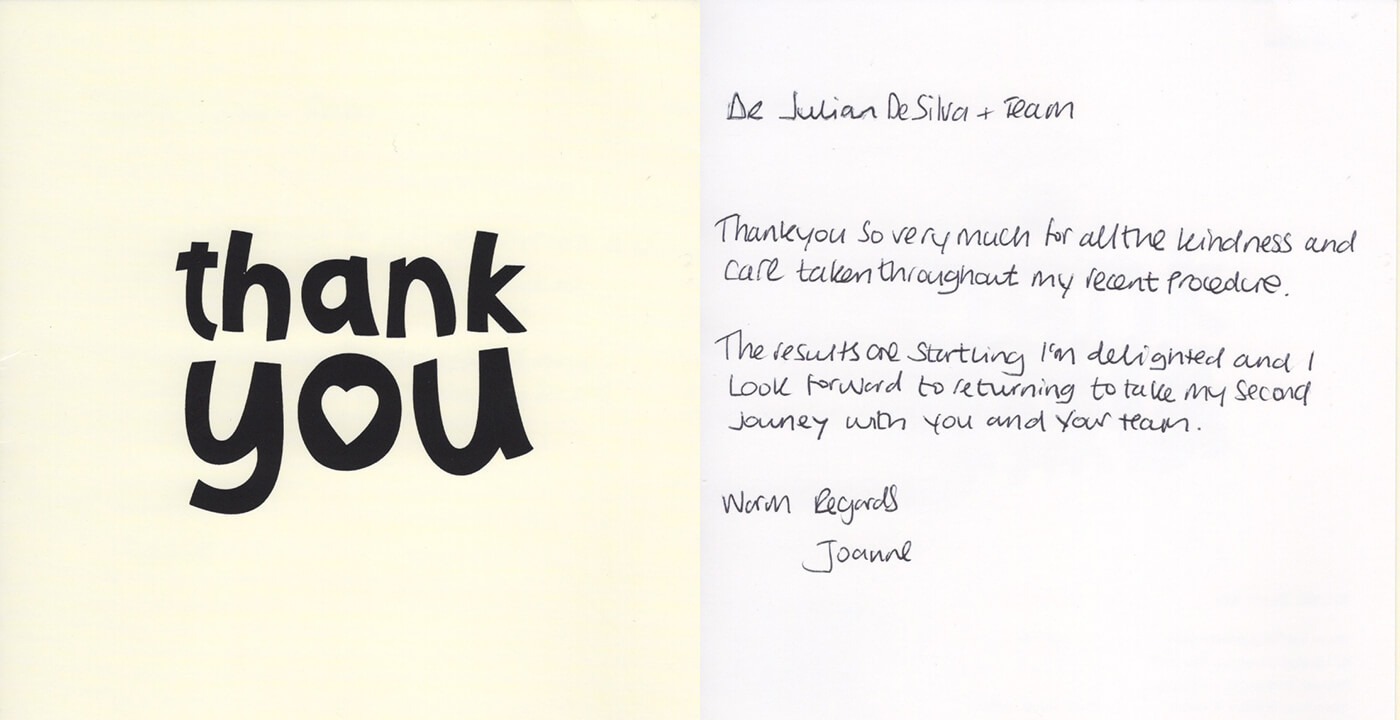 thank
you
Dr Julian De Silva + Team
Thankyou so very much for all the kindness and
care taken throughout my recent procedure.
The results are startling I'm delighted and I
look forward to returning to take my second
journey with you and your team.
Warm Regards
Joanne